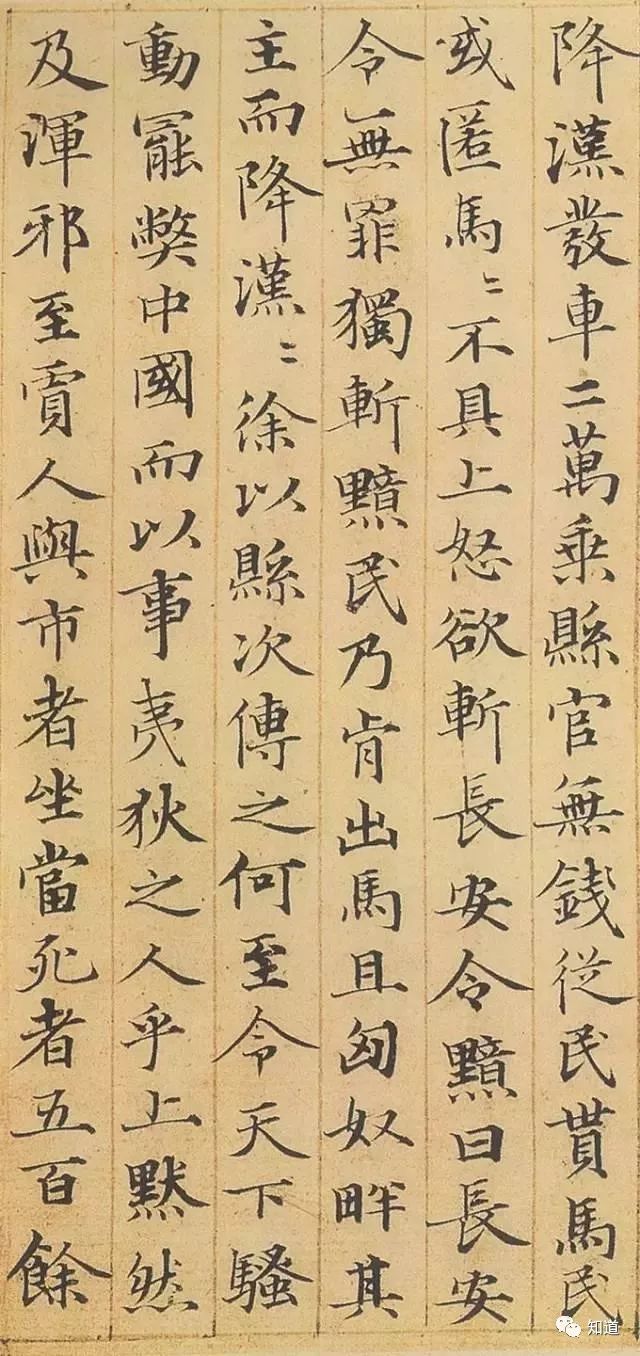 降漢發車二萬乗縣官無錢從民貰馬民
或匿馬〻不具上怒欲斬長安令黯曰長安
令無罪獨斬黯民乃肯出馬且匈奴畔其
主而降漢〻徐以縣次傳之何至令天下騷
動罷弊中國而以事夷狄之人乎上黙然
及渾邪至賈人與市者坐當死者五百餘
知道